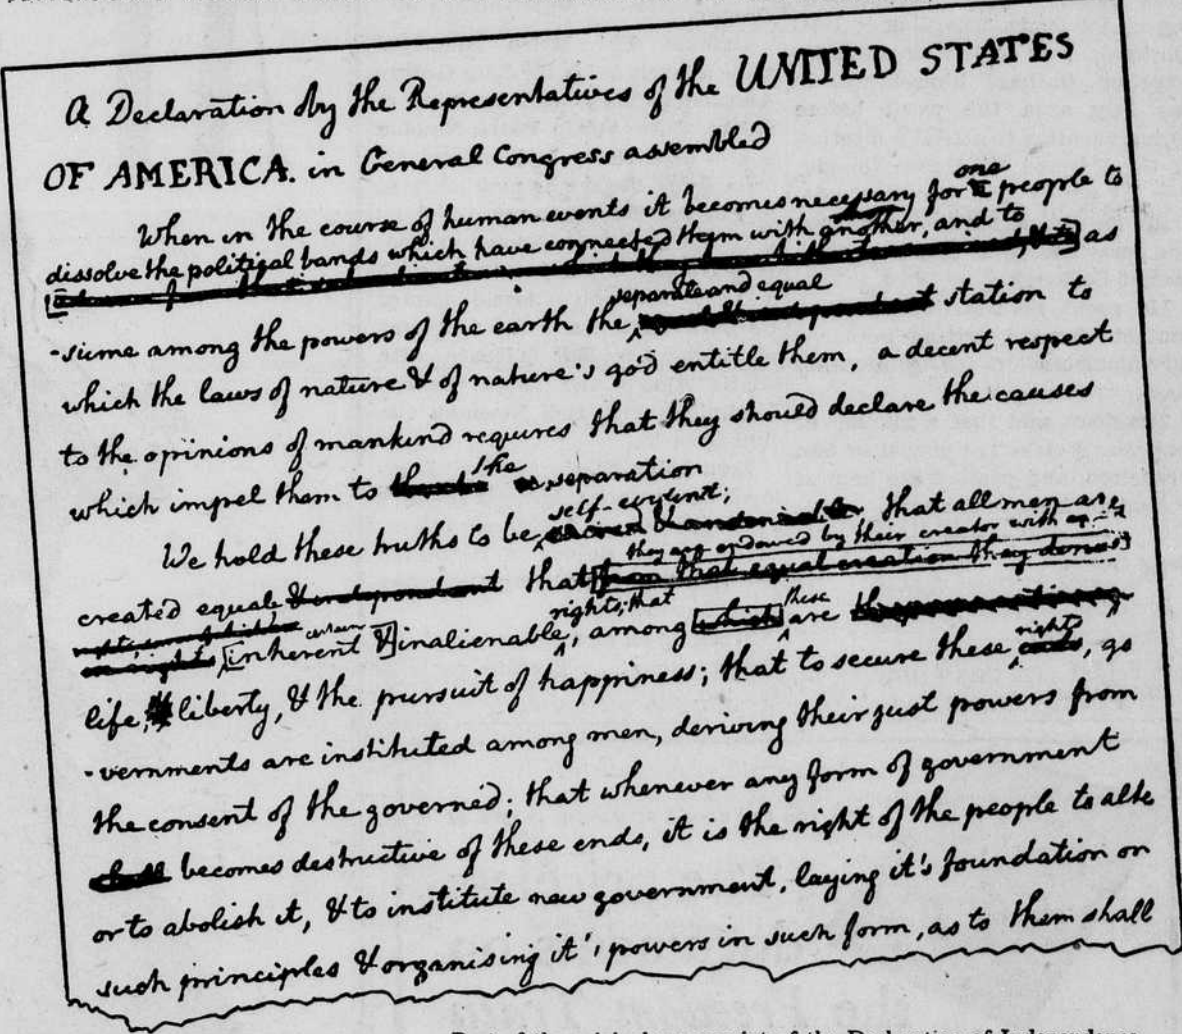 A Declaration by the Representatives of the UNITED STATES
OF AMERICA. in General Congress assembled
When in the course of human events it becomes necessary for
one
people to
dissolve the political bands which have connected them with another, and to
as
separate and equal
-sume among the powers of the earth the station to
which the laws of nature & of nature's god entitle them, a decent respect
to the opinions of mankind requires that they should declare the causes
which impel them to
the
separation
self-evident;
We hold these truths to be that all men are
they are endowed by their creator with
created equal & independent that from that equal creation they
rights; that
these
certain
inherent & inalienable, among which are
right
life, liberty, & the pursuit of happiness; that to secure these ends, go
-vernments are instituted among men, deriving their just powers from
the consent of the governed; that whenever any form of government
shall becomes destructive of these ends, it is the right of the people to alte
or to abolish it, & to institute new government, laying it's foundation on
such principles & organising it's powers in such form, as to them shall